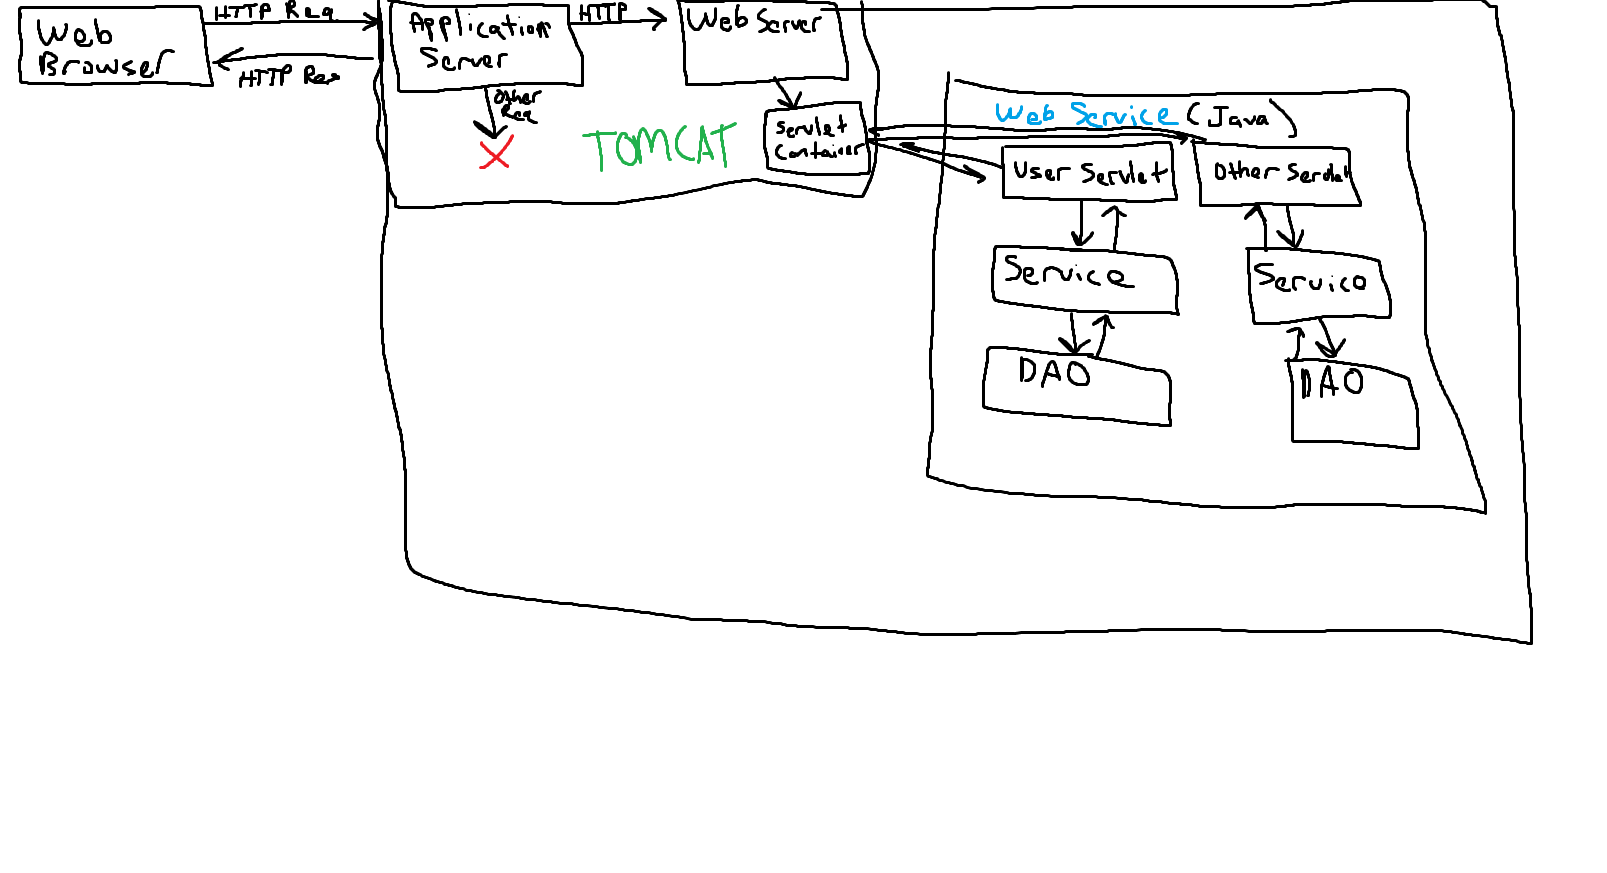 HTTP Req
Web
Browser
HTTP Res
Application
Server
HTTP
Web Server
Other
Req
TOMCAT
Servlet
Container
Web Service (Java)
User Servlet
Other Servlet
Service
Service
DAO
DAO